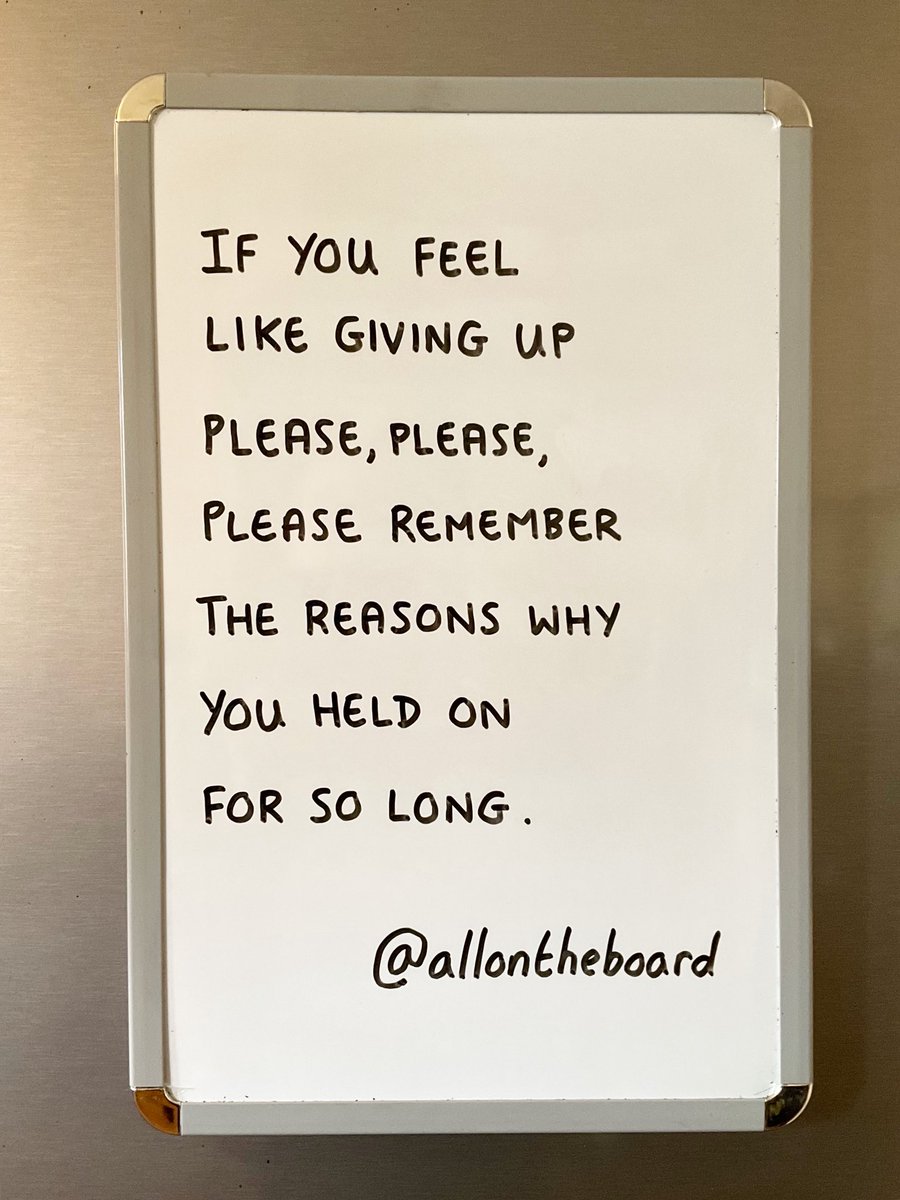 IF YOU FEEL
LIKE GIVING UP
PLEASE, PLEASE,
PLEASE REMEMBER
THE REASONS WHY
YOU HELD ON
FOR SO LONG.
@allontheboard